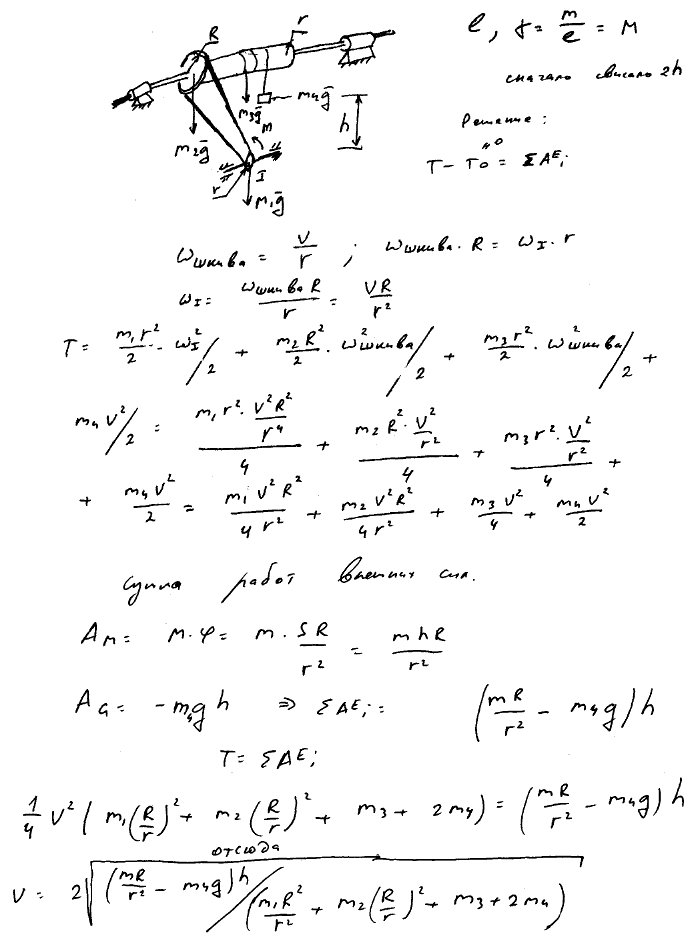 R
r
ℓ, γ = m/ℓ = M
сначала свисало 2h
m₄g̅
m₃g̅
h
M
m₂g̅
Решение:
I
r
m₁g̅
T - T₀ = ΣAᴱᵢ
"0
ωшкива = V/r ; ωшкива · R = ω_I · r
ω_I = ωшкива R / r = VR/r²
T = m₁r²/2 · ω_I²/2 + m₂R²/2 · ω²шкива/2 + m₃r²/2 · ω²шкива/2 +
m₄V²/2 = (m₁r² · V²R²/r⁴)/4 + (m₂R² · V²/r²)/4 + (m₃r² · V²/r²)/4 +
+ m₄V²/2 = m₁V²R²/4r² + m₂V²R²/4r² + m₃V²/4 + m₄V²/2
сумма работ внешних сил.
Aм = M · φ = m · SR/r² = mhR/r²
A_G = -m₄gh ⇒ ΣAᴱᵢ = (mR/r² - m₄g)h
T = ΣAᴱᵢ
1/4 V² (m₁(R/r)² + m₂(R/r)² + m₃ + 2m₄) = (mR/r² - m₄g)h
отсюда
V = 2√((mR/r² - m₄g)h/(m₁R²/r² + m₂(R/r)² + m₃ + 2m₄))